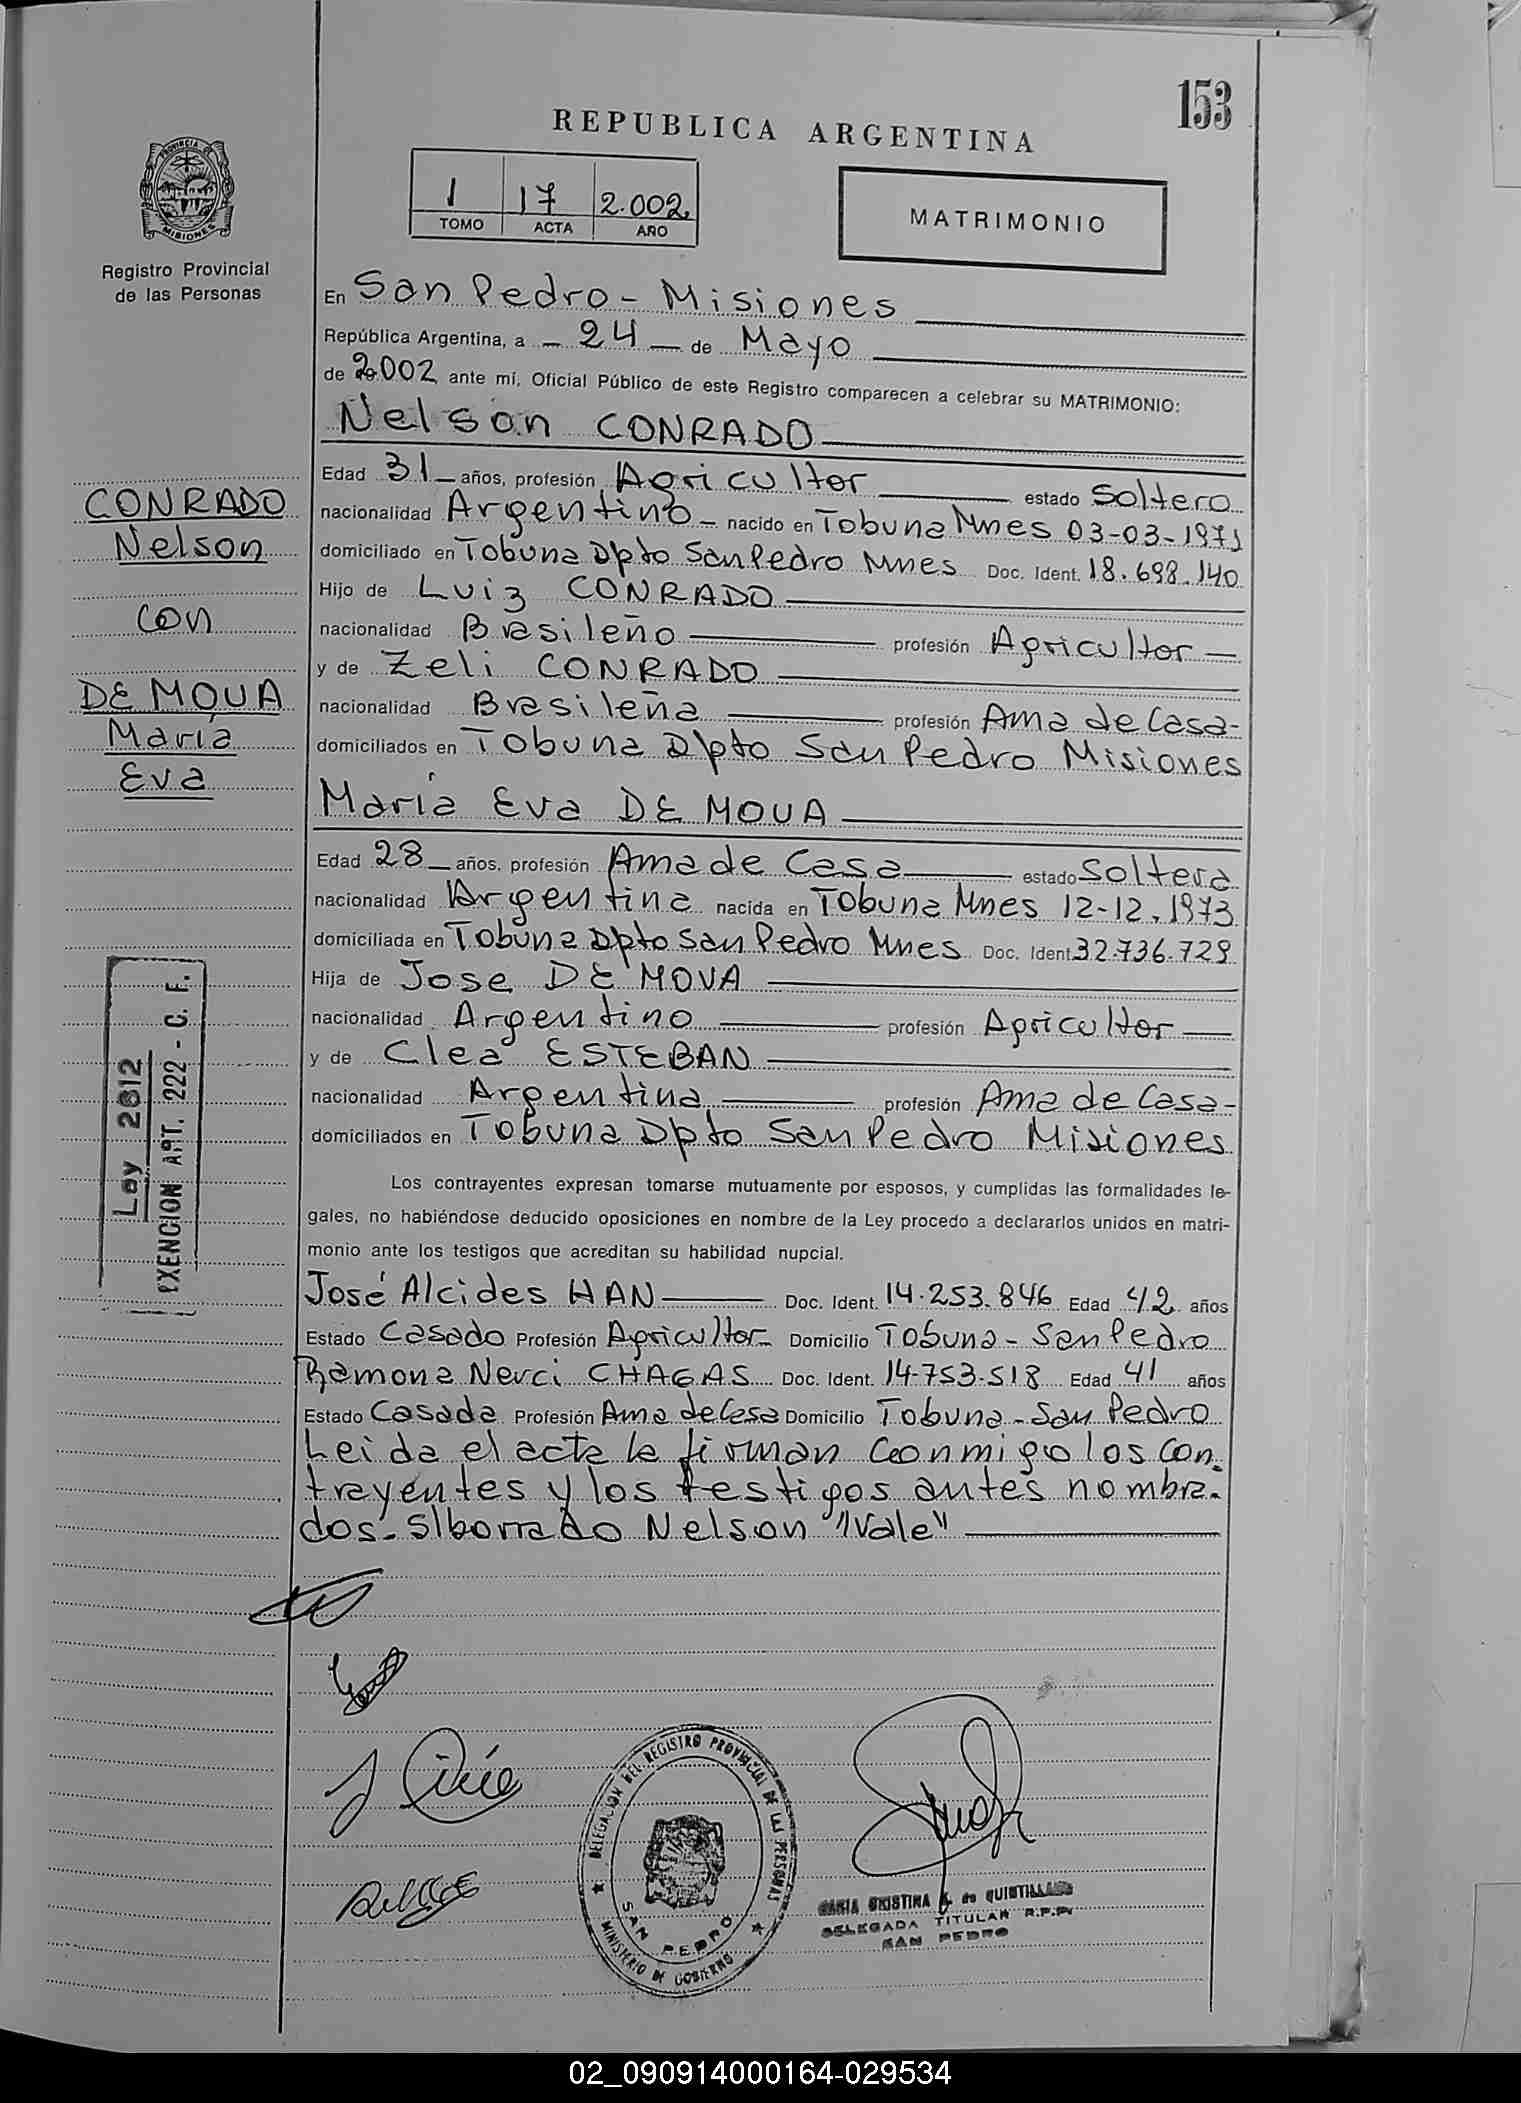 153
REPUBLICA ARGENTINA
PROVINCIA DE
MISIONES
Registro Provincial
de las Personas
1 17 2.002
TOMO ACTA AÑO
MATRIMONIO
En San Pedro - Misiones
República Argentina, a - 24 - de Mayo
de 2.002 ante mí, Oficial Público de este Registro comparecen a celebrar su MATRIMONIO:
Nelson CONRADO
Edad 31 años, profesión Agricultor estado Soltero
nacionalidad Argentino - nacido en Tobuna Mnes 03-03-1971
domiciliado en Tobuna Dpto San Pedro Mnes Doc. Ident. 18.698.140
Hijo de Luiz CONRADO
nacionalidad Brasileño profesión Agricultor -
y de Zeli CONRADO
nacionalidad Brasileña profesión Ama de Casa-
domiciliados en Tobuna Dpto San Pedro Misiones
María Eva DE MOUA
Edad 28 años, profesión Ama de Casa estado Soltera
nacionalidad Argentina nacida en Tobuna Mnes 12-12-1973
domiciliada en Tobuna Dpto San Pedro Mnes Doc. Ident. 32.736.729
Hija de Jose DE MOUA
nacionalidad Argentino profesión Agricultor
y de Clea ESTEBAN
nacionalidad Argentina profesión Ama de Casa-
domiciliados en Tobuna Dpto San Pedro Misiones
Los contrayentes expresan tomarse mutuamente por esposos, y cumplidas las formalidades le-
gales, no habiéndose deducido oposiciones en nombre de la Ley procedo a declararlos unidos en matri-
monio ante los testigos que acreditan su habilidad nupcial.
José Alcides HAN Doc. Ident. 14.253.846 Edad 42 años
Estado Casado Profesión Agricultor Domicilio Tobuna - San Pedro
Ramona Nerci CHAGAS Doc. Ident. 14-753-518 Edad 41 años
Estado Casada Profesión Ama de Casa Domicilio Tobuna - San Pedro
Leida el acta la firman conmigo los con-
trayentes y los testigos antes nombra-
dos - S/borrado Nelson "Vale"
CONRADO
Nelson
con
DE MOUA
María
Eva
Ley 2812
EXENCION ART. 222 - C. F.
DELEGACION DEL REGISTRO PROVINCIAL DE LAS PERSONAS
SAN PEDRO
MINISTERIO DE GOBIERNO
MARIA CRISTINA de QUINTILLAN
DELEGADA TITULAR R.P.P.
SAN PEDRO
02_090914000164-029534